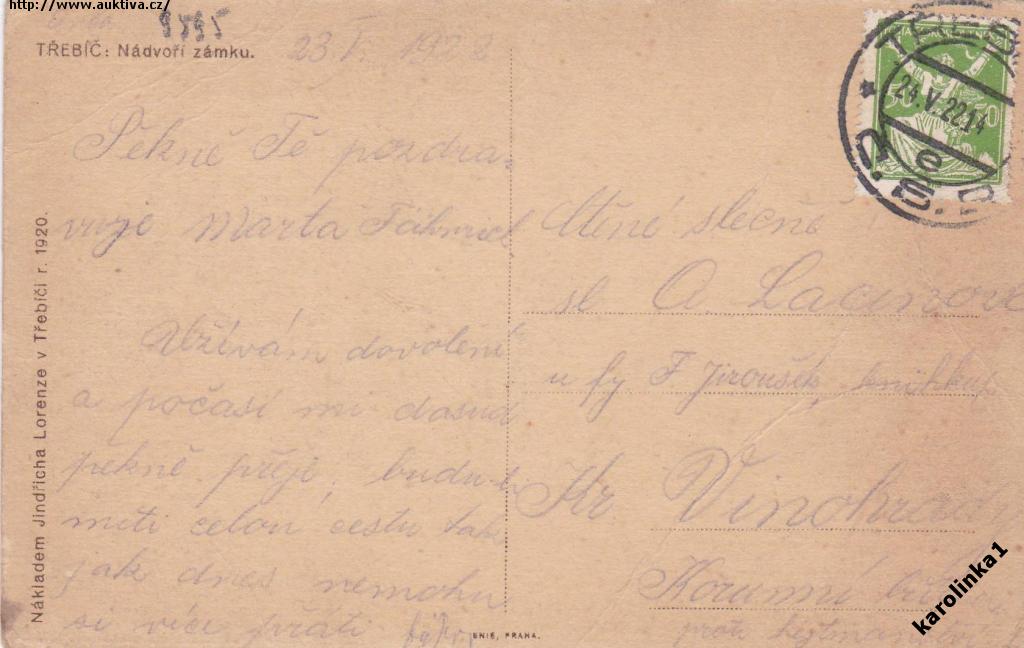 http://www.auktiva.cz/
9595
TŘEBÍČ: Nádvoří zámku.
23 V. 1922
Pěkně Tě pozdra-
vuje Marta
Užívám dovolené
a počasí mi dosud
pekně přeje, budu-li
míti celou cestu tak
jak dnes nemohu
si více práti
Nákladem Jindřicha Lorenze v Třebíči r. 1920.
UNIE, PRAHA.
24.V.22.14
50 50
Ctěné slečně
sl A. Lacinové
u fy F. Jiroušek, knihkup
Kr Vinohrad
Korunní
proti
karolinka1